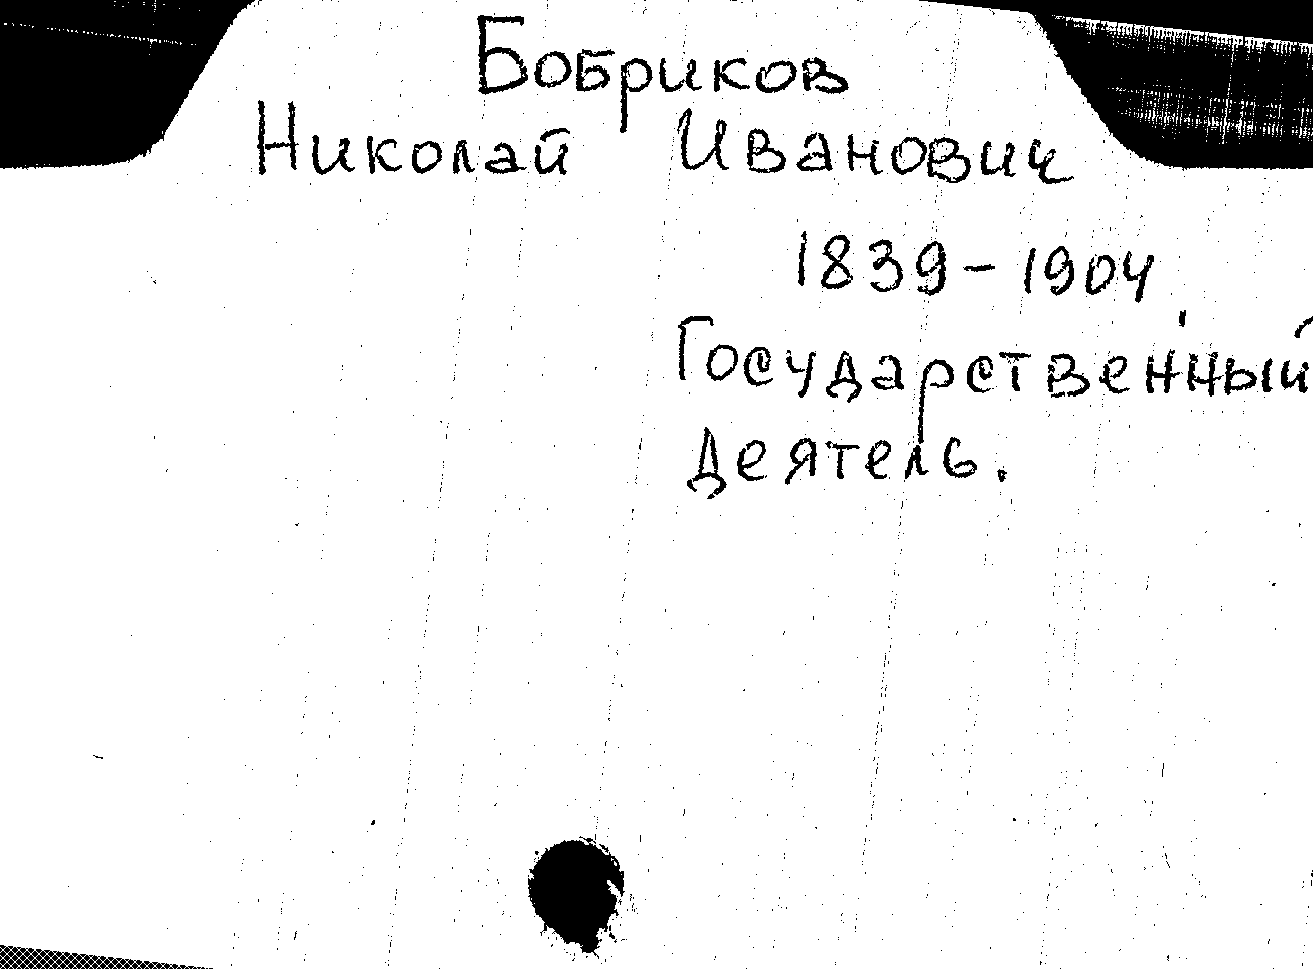 Бобриков
Николай Иванович
1839-1904
Государственный
деятель.